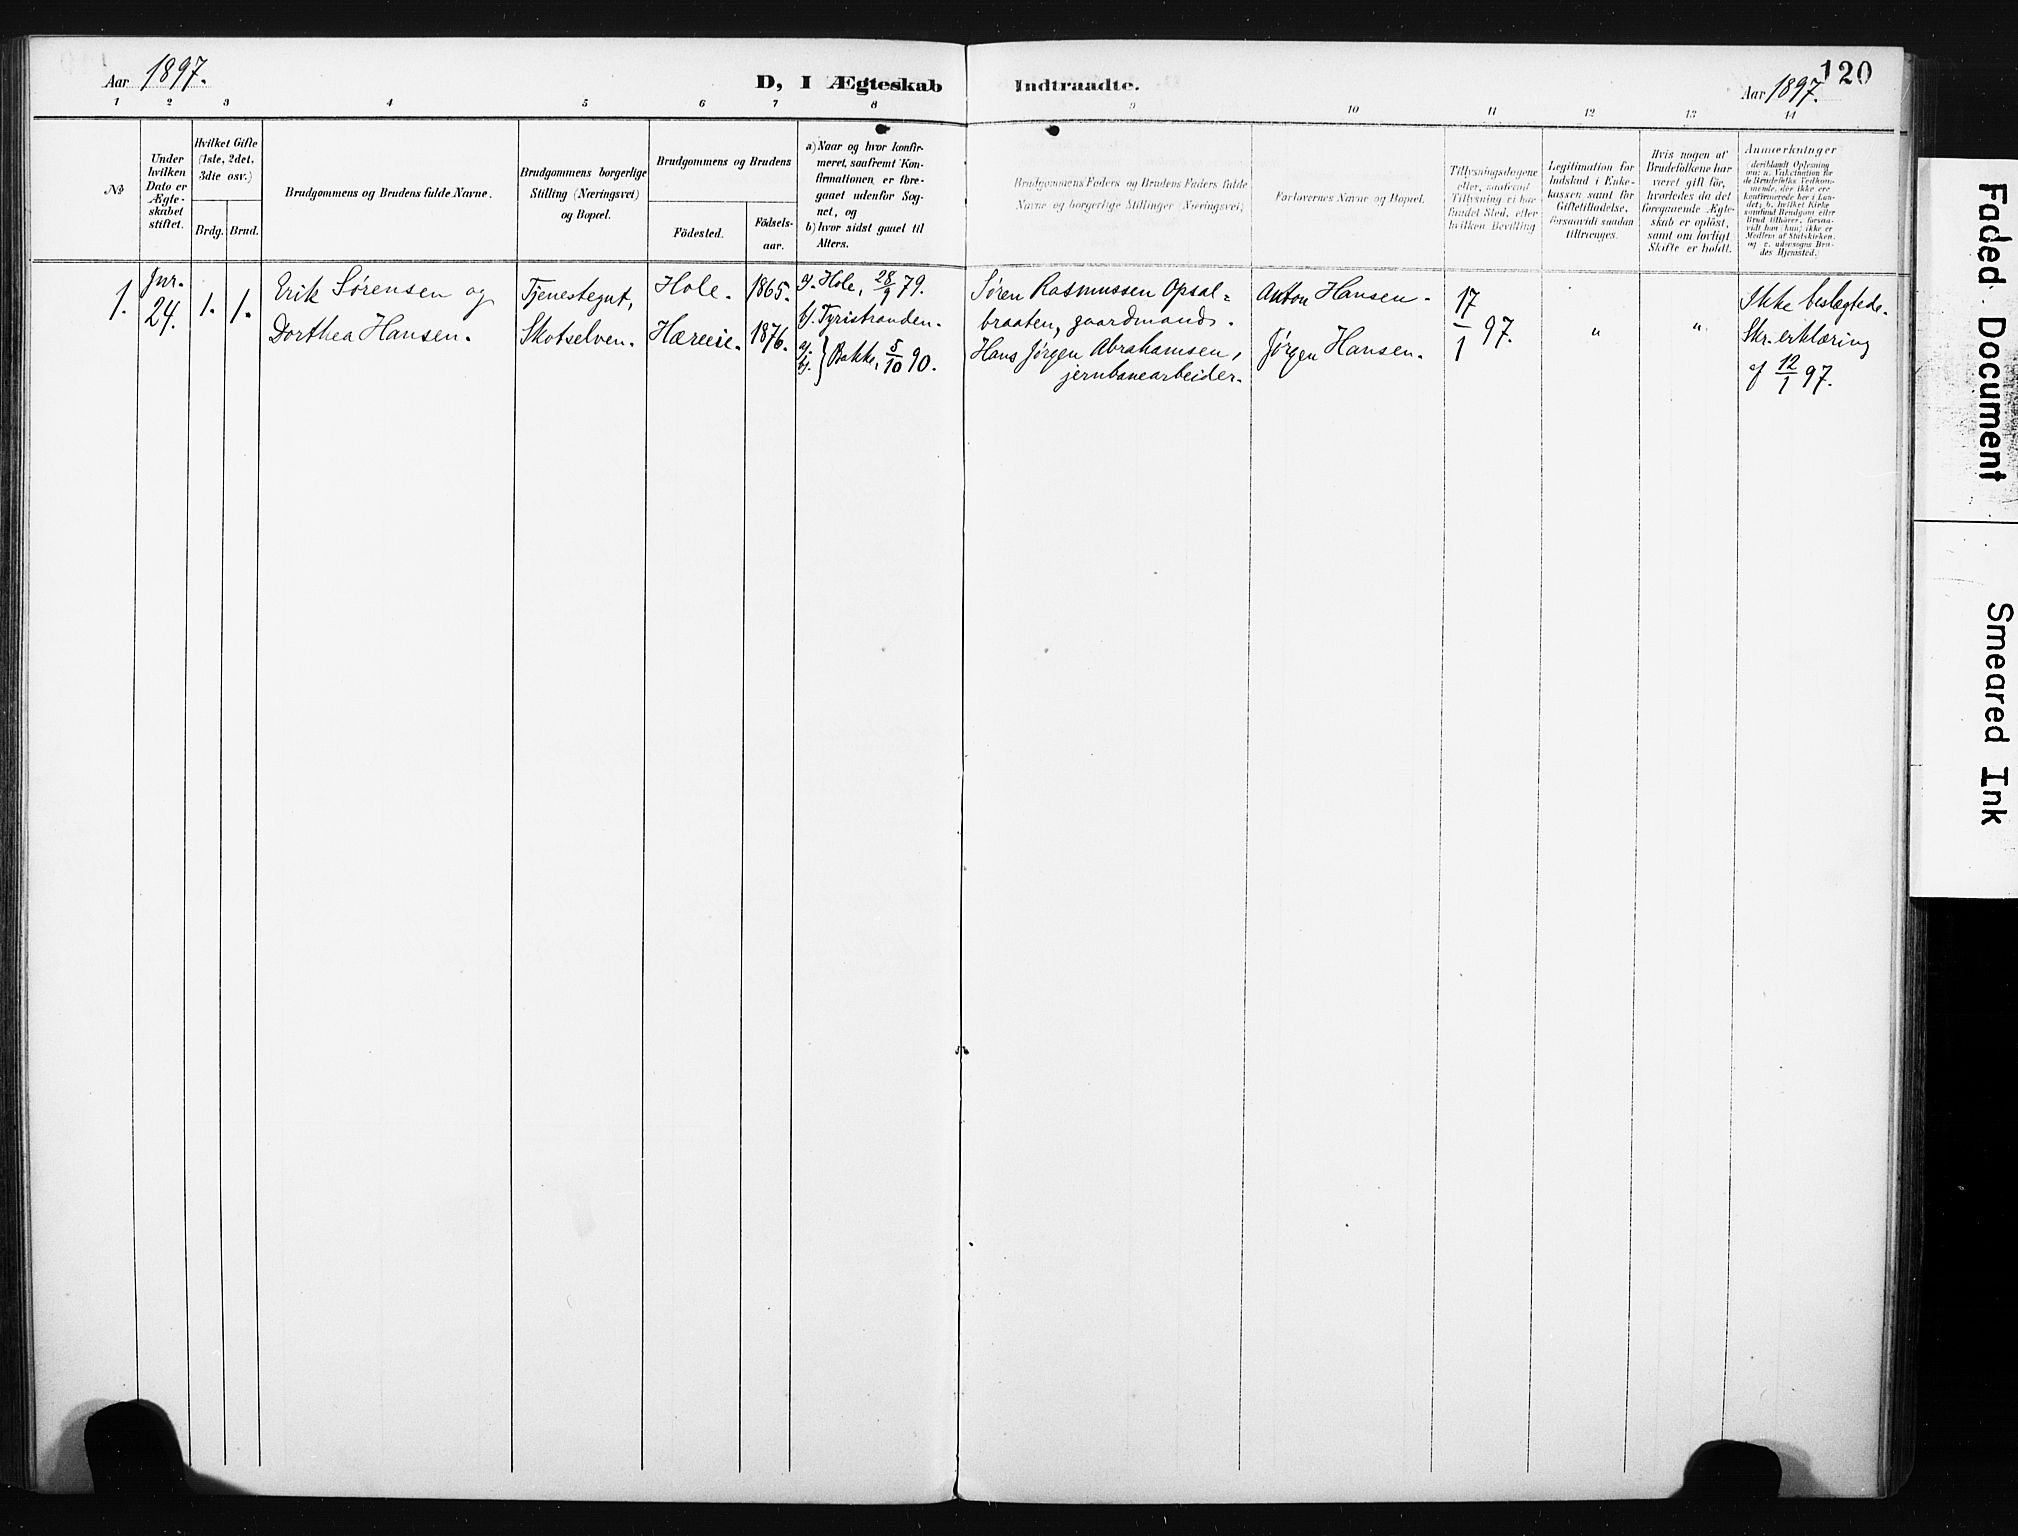 Aar 1897.
D, I Ægteskab Indtraadte.
120
Aar 1897.
1 2 3 4 5 6 7 8 9 10 11 12 13 14
No
Under
hvilken
Dato er
Ægte-
skabet
stiftet.
Hvilket Gifte
(1ste, 2det,
3dte osv.)
Brdg. Brud.
Brudgommens og Brudens fulde Navne.
Brudgommens borgerlige
Stilling (Næringsvei)
og Bopæl.
Brudgommens og Brudens
Födested.
Födsels-
aar.
a) Naar og hvor konfir-
meret, saafremt Kon-
firmationen er fore-
gaaet udenfor Sog-
net, og
b) hvor sidst gaaet til
Alters.
Brudgommens Faders og Brudens Faders fulde
Navne og borgerlige Stillinger (Næringsvei)
Forlovernes Navne og Bopæl.
Tillysningsdagene
eller, saafremt
Tillysning ei har
fundet Sted, efter
hvilken Bevilling
Legitimation for
Indskud i Enke-
kassen samt for
Giftetilladelse,
forsaavidt saadan
tiltrænges.
Hvis nogen af
Brudefolkene har
været gift för,
hvorledes da det
foregaaende Ægte-
skab er oplöst,
samt om lovligt
Skifte er holdt.
Anmærkninger
(deriblandt Oplysning
om: a. Vakcination for
de Brudefolks Vedkom-
mende, der ikke ere
konfirmerede her i Lan-
det; b. hvilket Kirke-
samfund Brudgom eller
Brud tilhører, forsaa-
vidt han (hun) ikke er
Medlem af Statskirken,
og c. udensogns Bru-
des Hjemsted.)
1.
Jnr.
24.
1. 1.
Erik Sørensen og
Dorthea Hansen.
Tjenestegut,
Skotselven.
Hole.
Hæreie.
1865.
1876.
a). Hole, 28/9 79.
b). Tyristranden.
a). b). } Bakke, 5/10 90.
Søren Rasmussen Opsal=
braaten, gaardmands.
Hans Jørgen Abrahamsen,
jernbanearbeider.
Anton Hansen.
Jørgen Hansen.
17/1 97.
"
"
Ikke beslægtede.
Skr. erklæring
af 12/1 97.
Faded Document
Smeared Ink